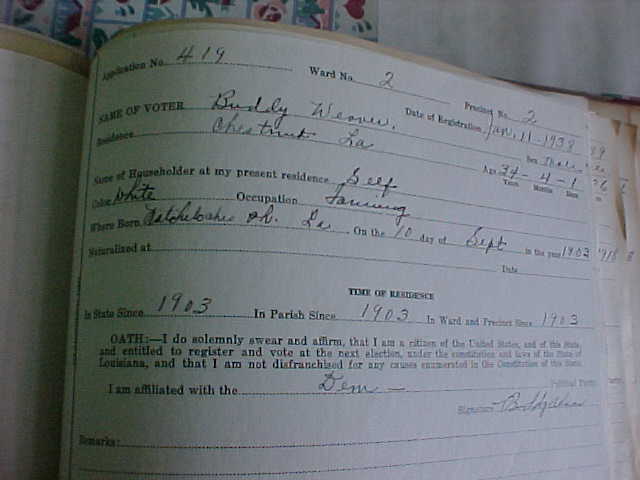 Application No. 419 Ward No. 2 Precinct No. 2
NAME OF VOTER Buddy Weaver. Date of Registration Jan. 11-1938
Residence Chestnut La Sex Male
Name of Householder at my present residence Self Age 34-4-1
Years Months Days
Color White Occupation Farming
Where Born Natchitoches Ph. La On the 10 day of Sept in the year 1903
Naturalized at Date
TIME OF RESIDENCE
In State Since 1903 In Parish Since 1903 In Ward and Precinct Since 1903
OATH:—I do solemnly swear and affirm, that I am a citizen of the United States, and of this State,
and entitled to register and vote at the next election, under the constitution and laws of the State of
Louisiana, and that I am not disfranchised for any causes enumerated in the Constitution of this State.
I am affiliated with the Dem — Political Party
Signature
Remarks: